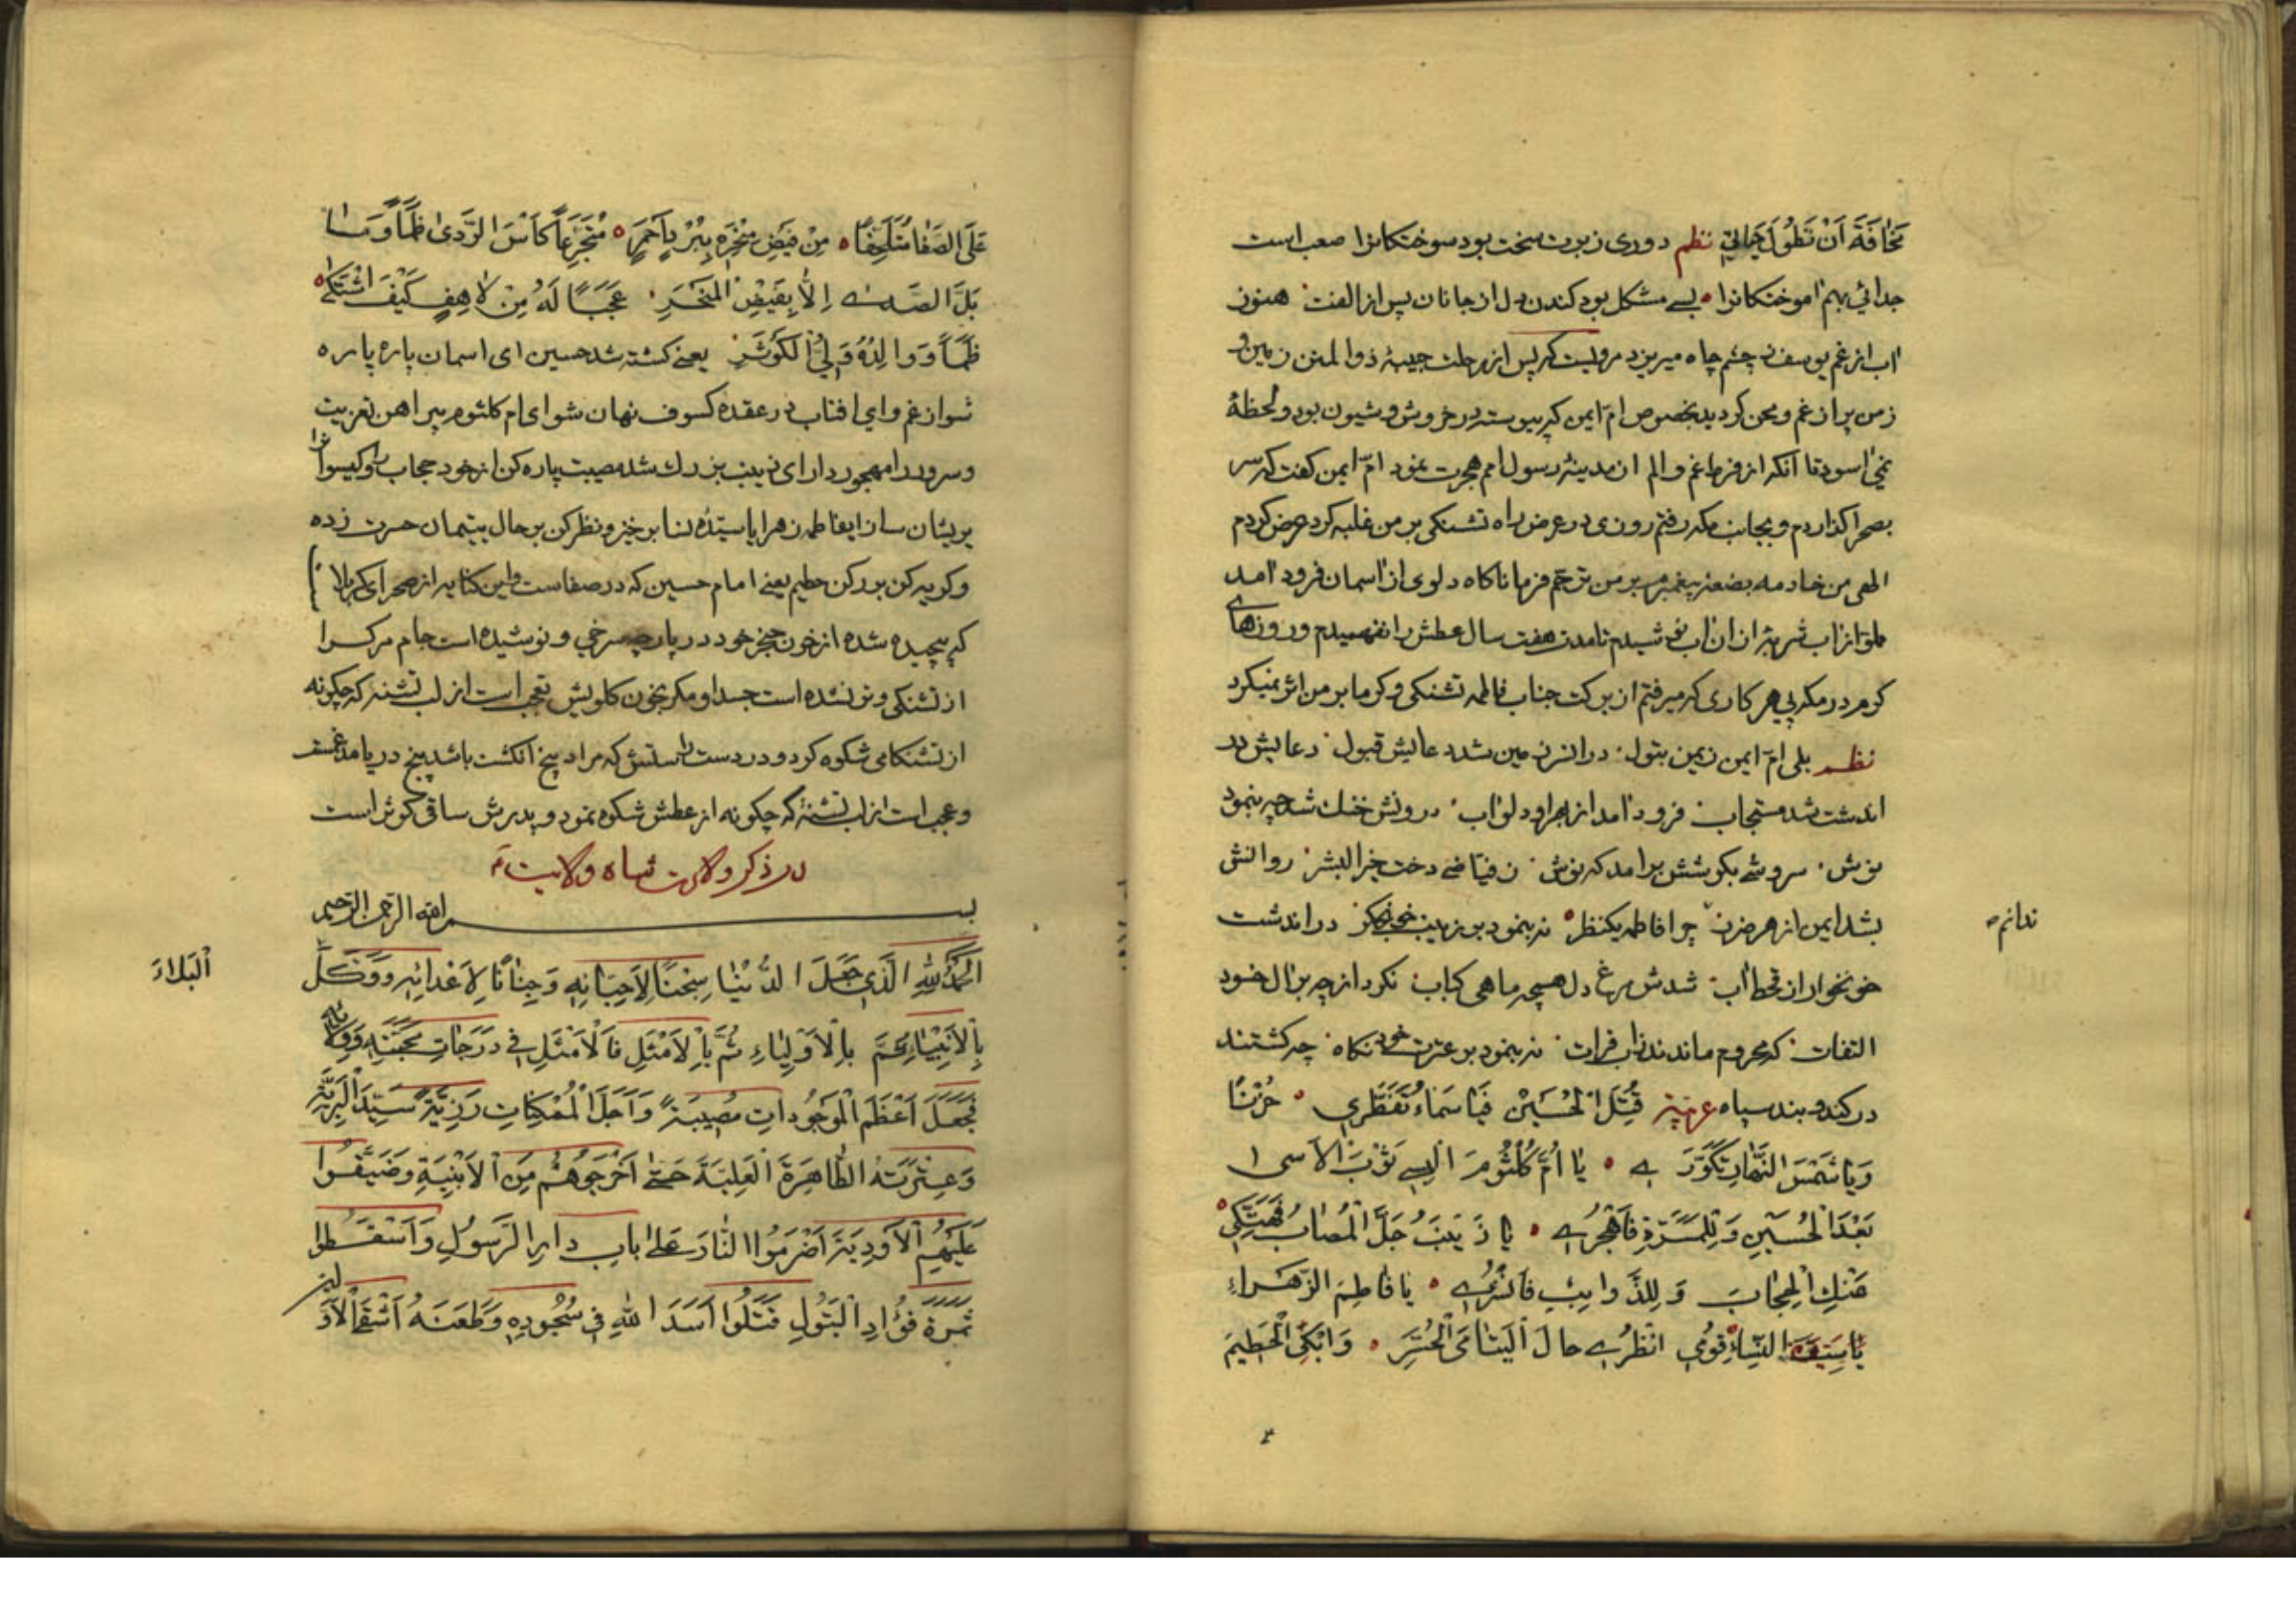 مَخافَةَ اَنْ تَطُولَ حَياتي نظم دوری ز برت سخت بود سوختکانرا صعب است
جدائی بهم اموختکانرا بسے مشکل بود کندن دل از جانان پس از الفت هنوز
اب از غم یوسف ز چشم چاه میریزد مرویست که پس از رحلت حبیبهٔ ذوالمنن زمین و
زمن پر از غم و محن کردید بخصوص ام ایمن که پیوسته در خروش و شیون بود و لحظهٔ
نمی اسود تا آنکه از فرط غم و الم از مدینهٔ رسول امم هجرت نمود امّ ایمن کفت که سر
بصحرا کذاردم و بجانب مکه رفتم روزی در عرض راه تشنکی بر من غلبه کرد عرض کردم
الهی من خادمه بضعهٔ پیغمبرم بر من ترحّم فرما ناکاه دلوی از اسمان فرود امد
مملو از اب شربتی از ان اب نوشیدم تا مدت هفت سال عطش را نفهمیدم و روزهاے
کرم در مکه پی هر کاری که میرفتم از برکت جناب فاطمه تشنکی و کرما بر من اثر نمیکرد
نظم بلی امّ ایمن ز یمن بتول در انسرزمین شد دعایش قبول دعایش در
اندشت شد مستجاب فرود امد از بهر او دلو اب درونش خنک شد چه بنمود
نوش سروشے بکوشش برامد که نوش ز فیاضے دخت خیر البشر روانش
بشد ایمن از هر ضرر چرا فاطمه یکنظر نه بنمود بر زینب خونجکر در اندشت
ندانم
خونخوار از قحط اب شدش مرغ دل همچه ماهی کباب نکرد از چه بر ال خود
التفات که محروم ماندند زاب فرات نه بنمود بر عترت خود نکاه چه کشتند
در کند و بند سپاه عربیّه قُتِلَ الْحُسَیْنُ فَیا سَماءُ تَفَطَّری حُزْنًا
وَیا شَمْسَ النَّهارِ تَکَوَّرَ ے یا اُمَّ کُلْثُومَ الْبِسے ثَوْبَ الاَسی ا
بَعْدَ الْحُسَیْنِ وَ لِلْمَسَرَّةِ فَاهْجُرے یا زَیْنَبُ جَلَّ الْمُصابُ فَهَتِّکی
عَنْكِ الْحِجابَ وَ لِلذَّوائِبِ فَانْشُرے یا فاطِمَ الزَّهراءِ
یا سَیِّدَةَ النِّساءِ قُومي انْظُرے حالَ الْیَتامَی الْحُسَّرِ وَابْکی الْحَطیمَ
عَلَی الصَّفا مُتَلَحِّفًا مِنْ فَیْضِ مَنْحَرِهِ بِبُرْدٍ اَحْمَرٍ مُتَجَرِّعًا کَاْسَ الرَّدیٰ ظَمَأً وَ مٰا
بَلَّ الصَّدےٰ اِلّٰا بِفَیْضِ الْمَنْحَرِ عَجَبًا لَهُ مِنْ لاهِفٍ کَیْفَ اشْتَکیٰ
ظَمَأً وَ والِدُهُ وَلِيُّ الْکَوْثَرِ یعنے کشته شد حسین ای اسمان پاره پاره
شو از غم و اي افتاب در عقده کسوف نهان شو ای ام کلثوم پیراهن تعزیت
و سرور را مهجور دار ای زینب بزرك شد مصیبت پاره کن از خود حجاب را و کیسوان را
پریشان ساز ایفاطمه زهرا یا سیّدهٔ نسا بر خیز و نظر کن بر حال یتیمان حسرت زده
و کریه کن بر رکن حطیم یعنے امام حسین که در صفاست و این کنایه از صحرای کربلا
که پیچیده شده از خون حنجر خود در پارچه سرخی و نوشیده است جام مرك را
از تشنکی و تر نشده است جسد او مکر بخون کلویش تعجب است از لب تشنه که چکونه
از تشنکامی شکوه کرد و در دست راستش که مراد پنج انکشت باشد پنج دریا مدغمست
و عجب است از لب تشنهٔ که چکونه از عطش شکوه نمود و پدرش ساقی کوثر است
در ذکر ولادت شاه ولایت ؑ
بسم الله الرحمن الرحیم
اَلْحَمْدُ لِلّٰهِ الَّذي جَعَلَ الدُّنْیٰا سِجْنًا لِاَحِبّائِهِ وَ جِنانًا لِاَعْدائِهِ وَ وَکَّلَ
اَلْبَلاءَ
بِالْاَنْبِیٰاءِ ثُمَّ بِالْاَوْلِیٰاءِ ثُمَّ بِالْاَمْثَلِ فَالْاَمْثَلِ في دَرَجاتِ مَحَبَّتِهِ وَ وَلائِهِ
فَجَعَلَ اَعْظَمَ الْمَوْجُوداتِ مُصیبَةً وَ اَجَلَّ الْمُمْکِناتِ رَزِیَّةً سَیِّدَ الْبَرِیَّةِ
وَ عِتْرَتَهُ الطّاهِرَةَ الْعَلِیَّةَ حَتّےٰ اَخْرَجُوهُمْ مِنَ الْاَبْنِیَةِ وَ ضَیَّقُوا
عَلَیْهِمُ الْاَوْدِیَةَ اَضْرَمُوا النّارَ عَلیٰ بابِ دارِ الرَّسُولِ وَ اَسْقَطُوا
ثَمَرَةَ فُؤادِ الْبَتُولِ قَتَلُوا اَسَدَ اللّٰهِ في سُجُودِهِ وَ طَعَنَهُ اَشْقَی الْاَوَّلینَ